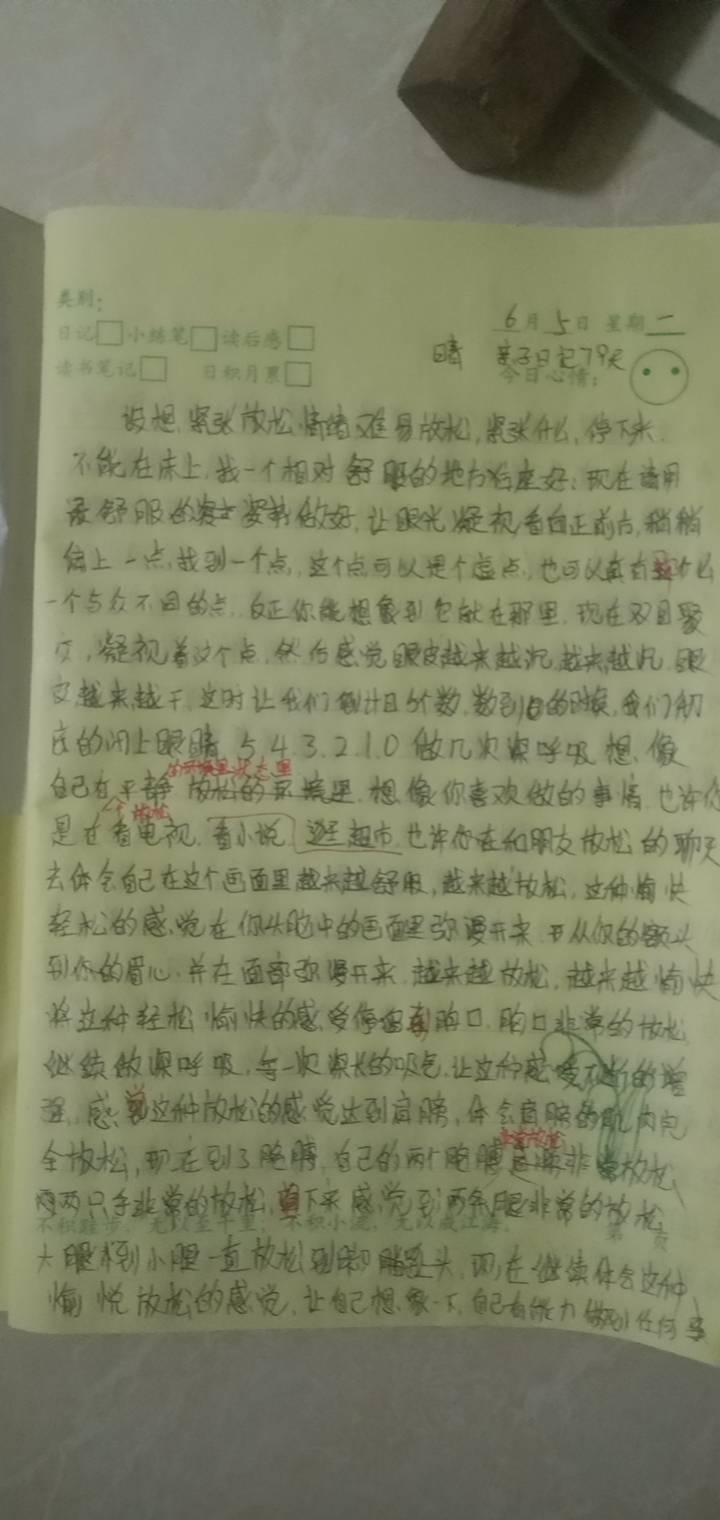 类别：
6月5日 星期二
日记 小练笔 读后感
晴 亲子日记79天
读书笔记 日积月累 今日心情：
设想，紧张放松情绪难易放松，紧张什么，停下来.
不能在床上，找一个相对舒服的地方后座好；现在请用
最舒服的姿势做好，让眼光凝视着自正前方，稍稍
偏上一点，找到一个点，这个点可以是个虚点，也可以真有什么
一个与众不同的点，反正你能想象到它就在那里，现在双目聚
凝视着这个点，然后感觉眼皮越来越沉，越来越沉，眼
皮越来越干，这时让我们倒计时5个数，数到0的时候，我们彻
底的闭上眼睛，5.4.3.2.1.0做几次深呼吸，想像
的环境里状态里
自己在平静放松的环境里，想像你喜欢做的事情，也许你
个放松
是在看电视，看小说，逛超市，也许你在和朋友放松的聊天
去体会自己在这个画面里越来越舒服，越来越放松，这种愉快
轻松的感觉在你头脑中的画面里弥漫开来，并从你的额头
到你的眉心，并在面部弥漫开来，越来越放松，越来越愉快
将这种轻松愉快的感受停留到胸口，胸口非常的放松
继续做深呼吸，每一次深长的吸气，让这种感受不断的增
强，感到这种放松的感觉达到肩膀，体会肩膀的肌肉完
非常放松
全放松，现在到了胳膊，自己的两个胳膊非常放松
两只手非常的放松，下来感觉到两条腿非常的放松
不积跬步，无以至千里；不积小流，无以成江海。 第 页
大腿到小腿一直放松到脚趾头，现在继续体会这种
愉悦放松的感觉，让自己想象一下，自己有能力做到任何事